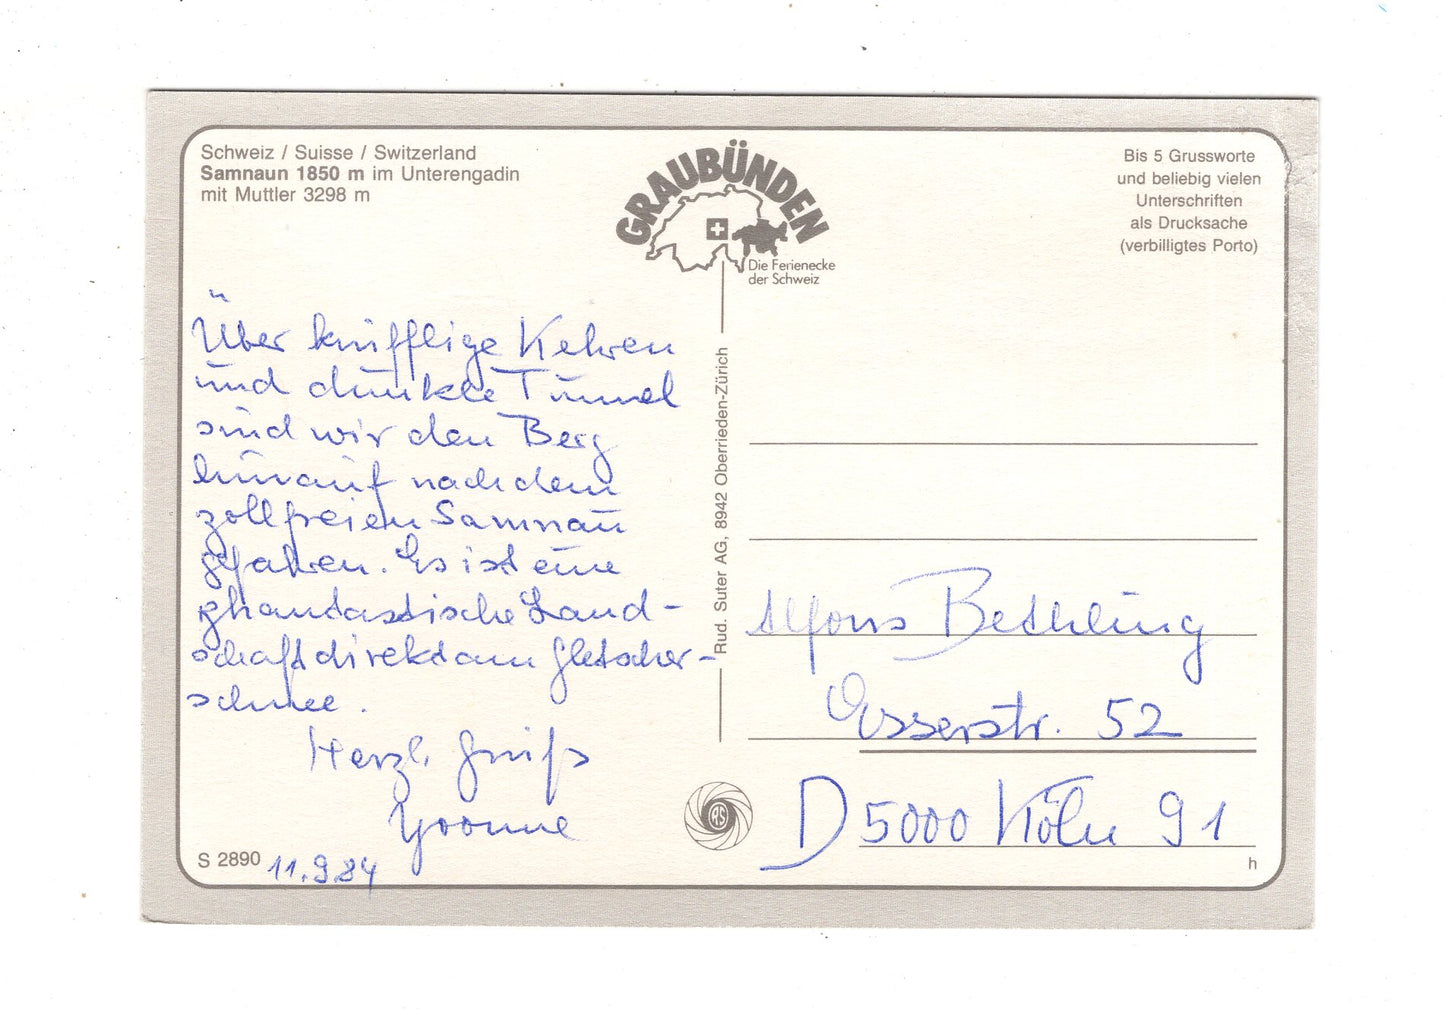 Schweiz / Suisse / Switzerland
Samnaun 1850 m im Unterengadin
mit Muttler 3298 m
GRAUBÜNDEN
Die Ferienecke
der Schweiz
Bis 5 Grussworte
und beliebig vielen
Unterschriften
als Drucksache
(verbilligtes Porto)
Über knifflige Kehren
und dunkle Tunnel
sind wir den Berg
hinauf nach dem
zollfreien Samnau
gefahren. Es ist eine
phantastische Land-
schaft direkt am Gletscher-
schnee.
Herzl. Gruß
Yvonne
11.9.84
S 2890
Rud. Suter AG, 8942 Oberrieden-Zürich
Alfons Bethling
52
D 5000 Köln 91
RS
h